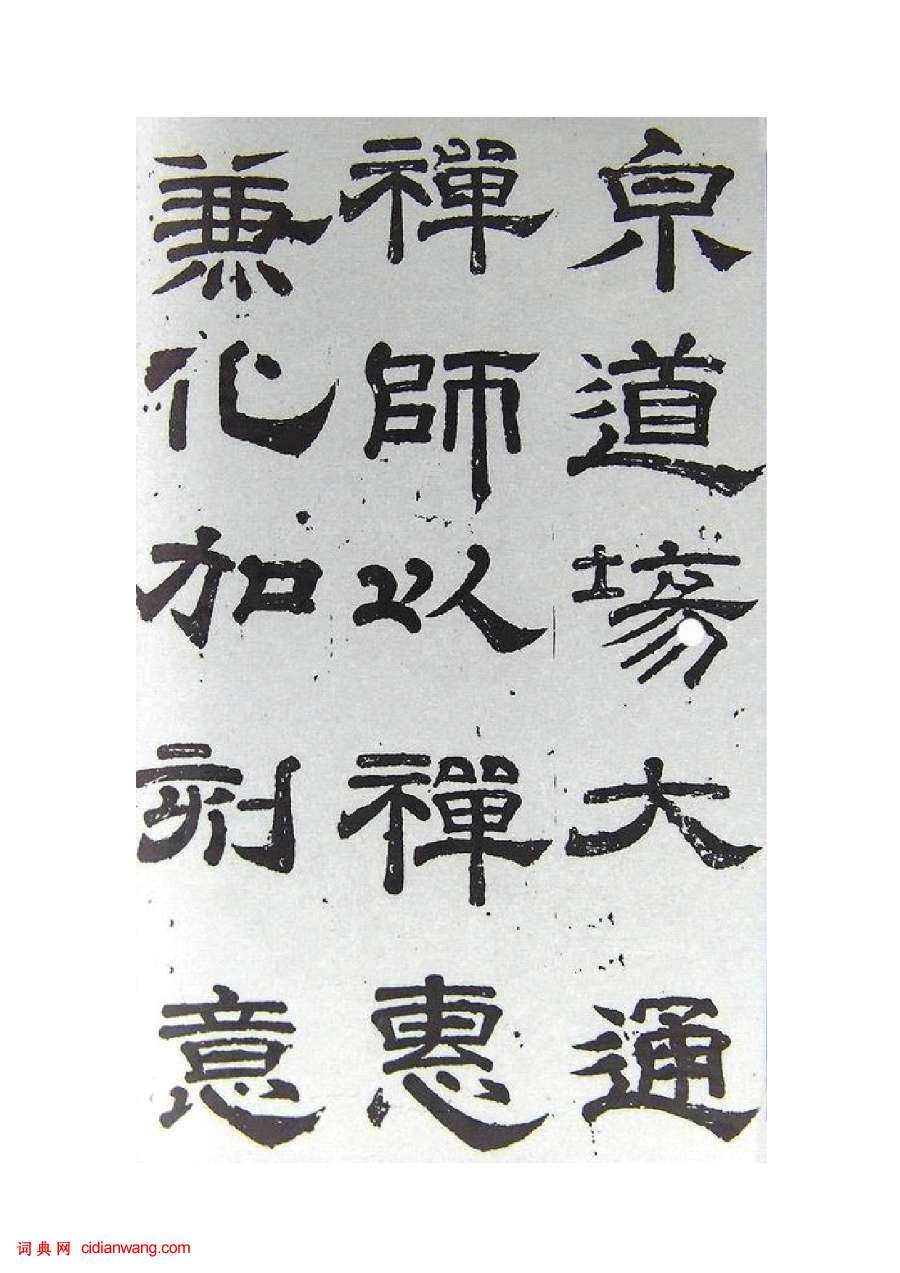 京道場大通
禪師以禪惠
兼化加刻意
词典网 cidianwang.com